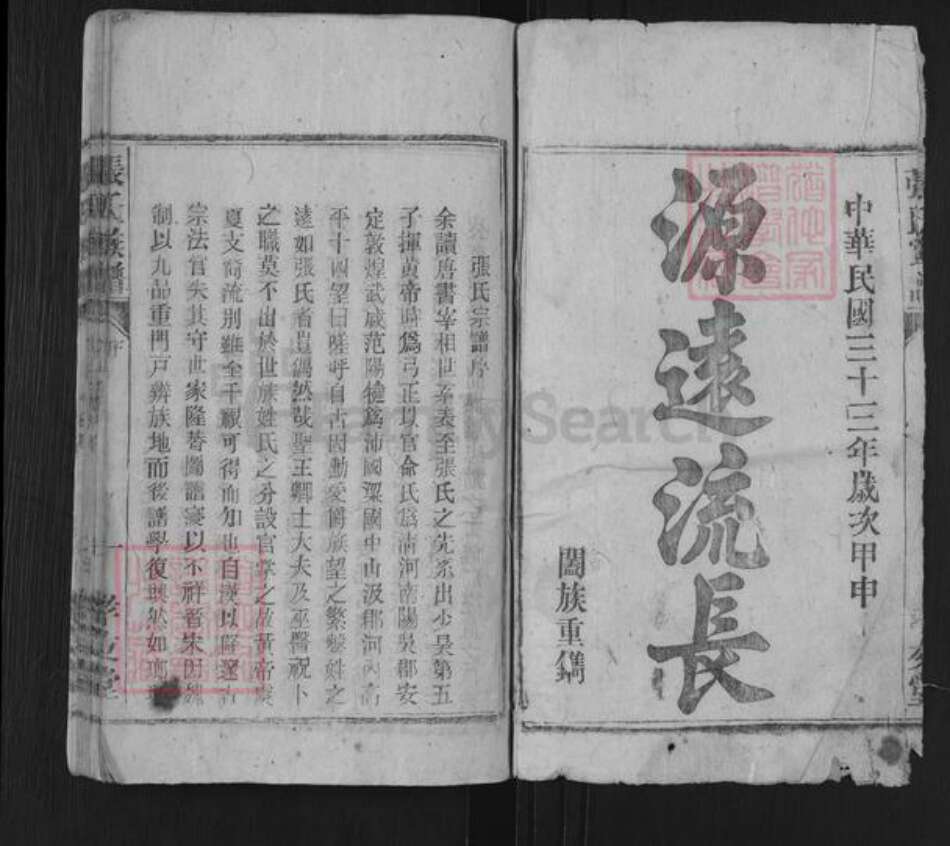 中華民國三十三年歲次甲申
源遠流長
闔族重鐫
張氏宗譜序
余讀唐書宰相世系表至張氏之先系出少昊第五
子揮黃帝時為弓正以官命氏為清河南陽吳郡安
定敦煌武威范陽犍為沛國梁國中山汲郡河內高
平十四望曰嗟呼自古因勳爵族望之繁姓之
遠如張氏者豈偶然哉聖王卿士大夫及巫醫祝卜
之職莫不出於世族姓氏之分設官掌之故黃帝
夏文裔流別雖全千禩可得而知也自漢以降
宗法官失其守世家隆替圖譜寖以不祥晉宋因
制以九品重門戶辨族地而後譜學復興然如
張氏族譜
序
一
FamilySearch